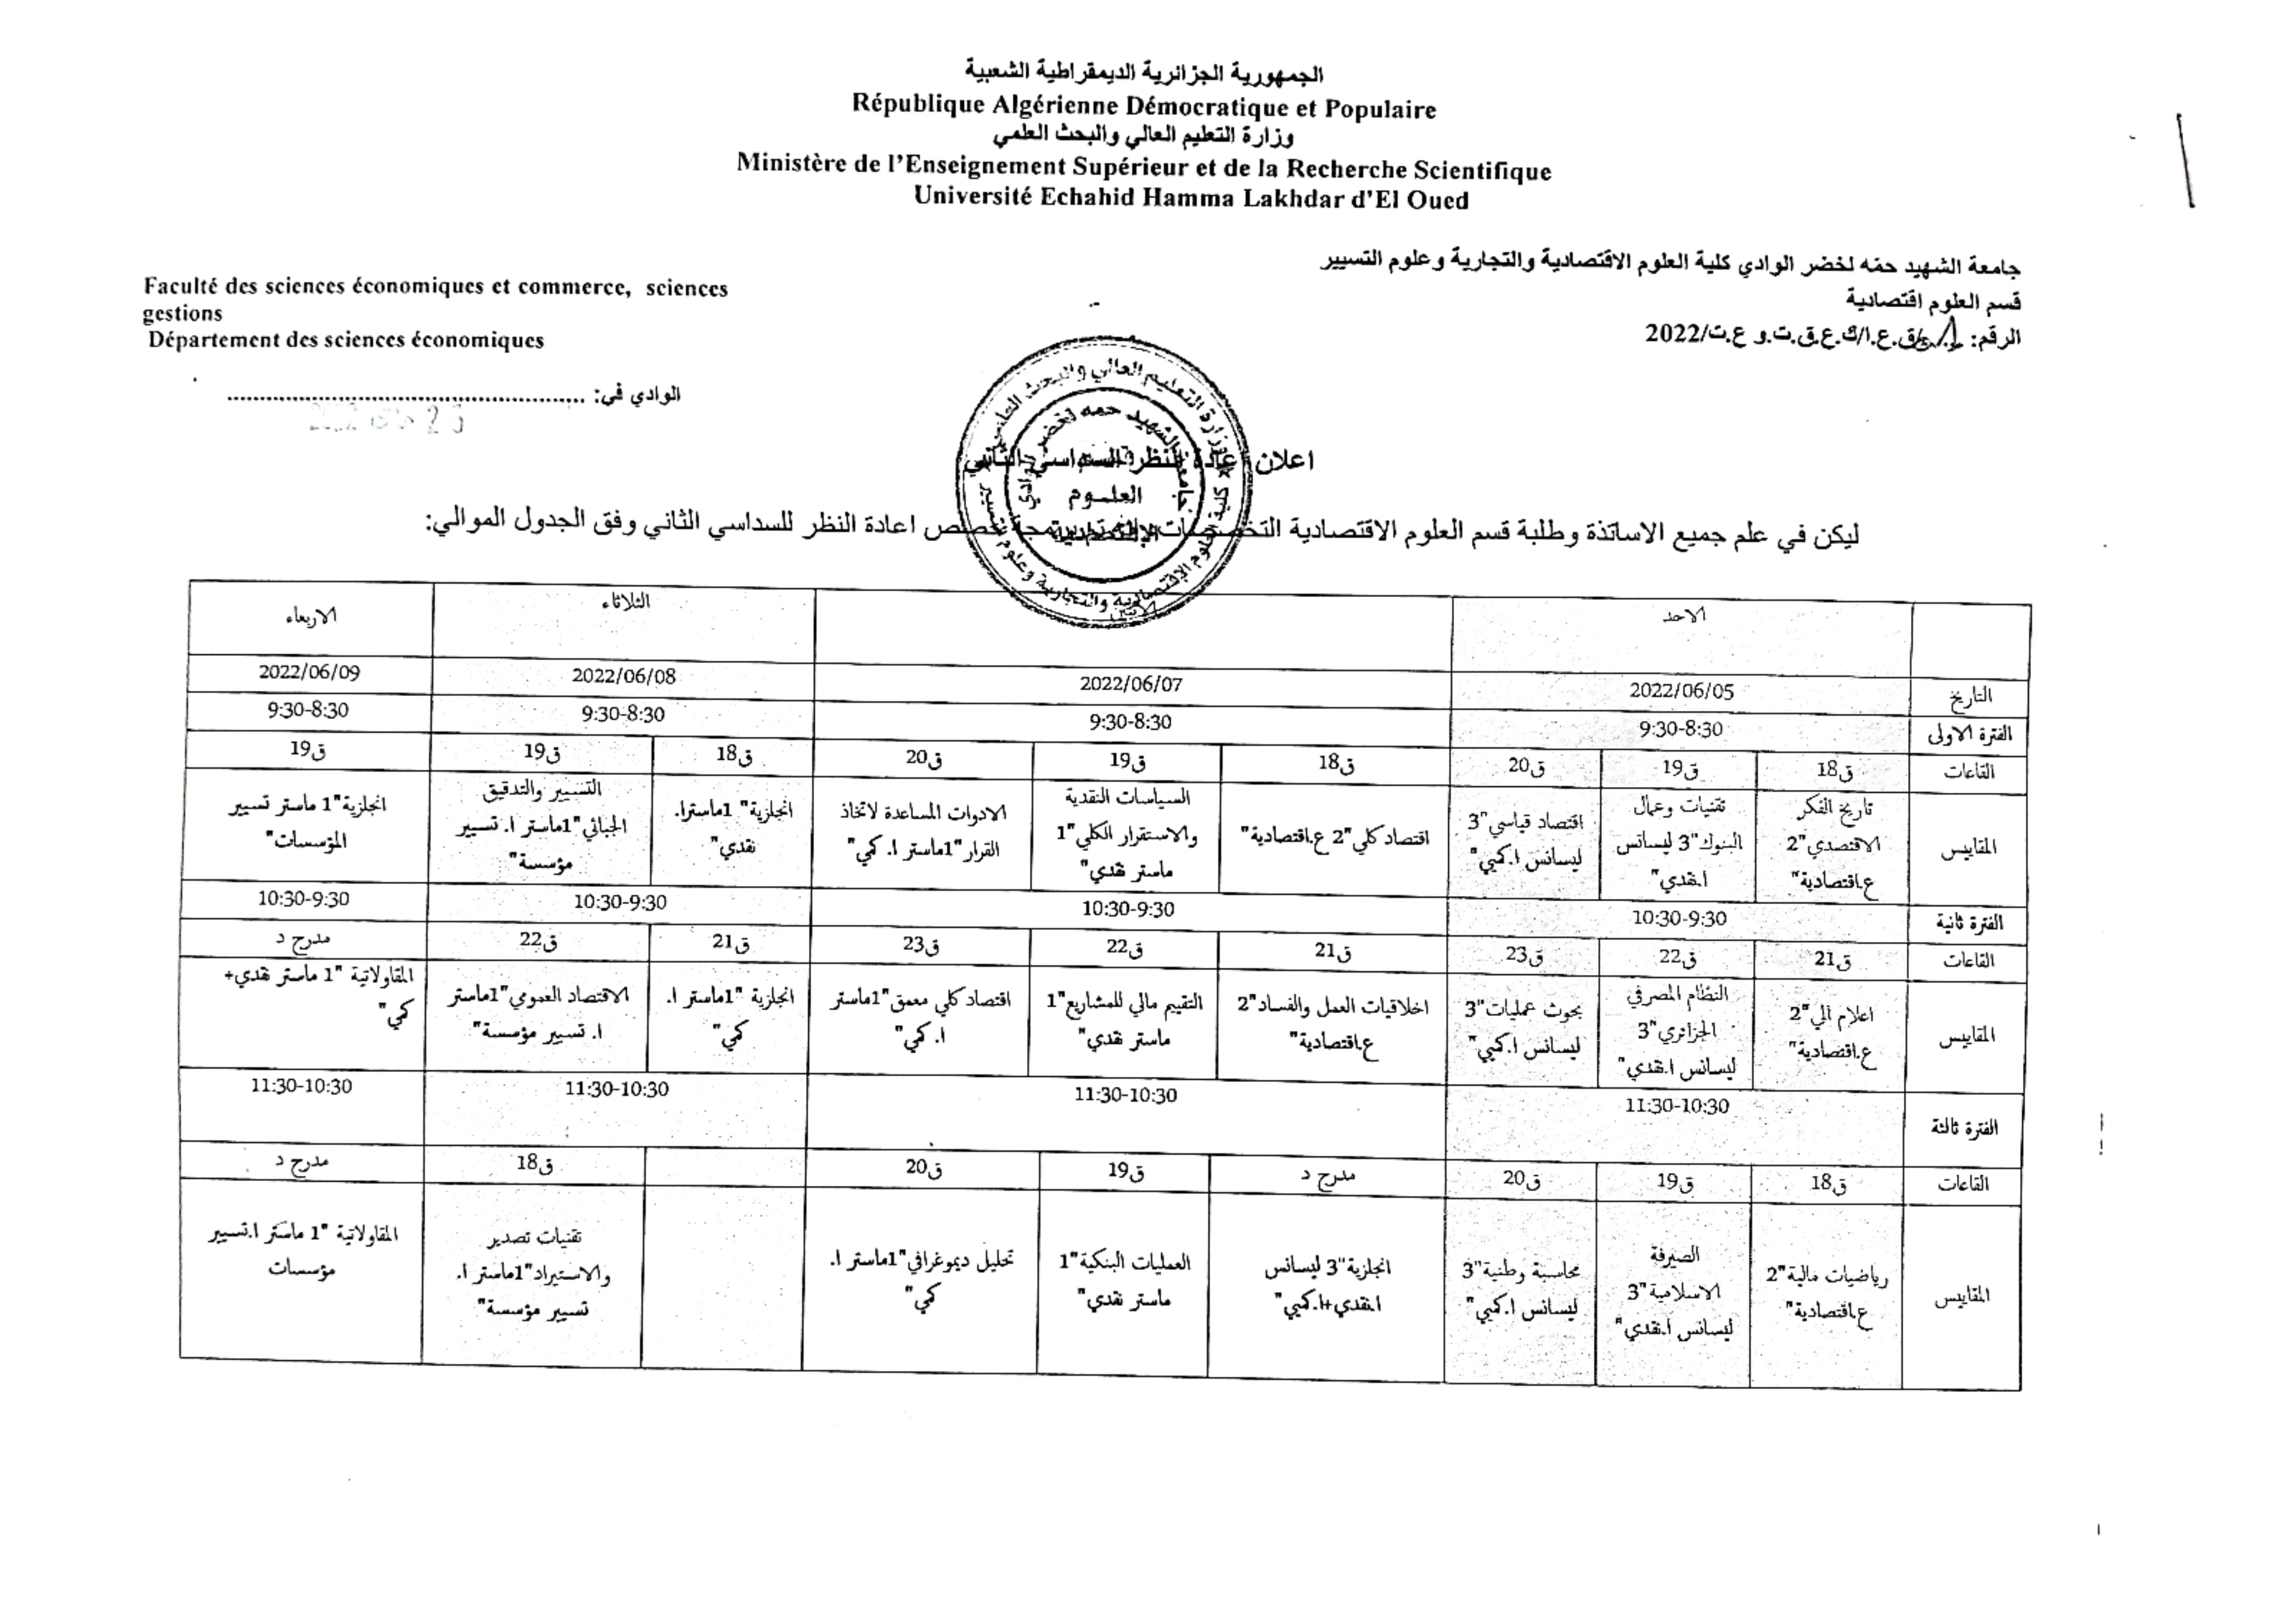 الجمهورية الجزائرية الديمقراطية الشعبية
République Algérienne Démocratique et Populaire
وزارة التعليم العالي والبحث العلمي
Ministère de l'Enseignement Supérieur et de la Recherche Scientifique
Université Echahid Hamma Lakhdar d'El Oued
جامعة الشهيد حمّه لخضر الوادي كلية العلوم الاقتصادية والتجارية وعلوم التسيير
قسم العلوم اقتصادية
الرقم: /ق.ع.ا/ك.ع.ق.ت.و ع.ت/2022
Faculté des sciences économiques et commerce, sciences
gestions
Département des sciences économiques
الوادي في: ........................................
وزارة التعليم العالي والبحث العلمي
جامعة الشهيد حمه لخضر الوادي
كلية العلوم الإقتصادية والتجارية وعلوم التسيير
العلوم
اعلان النظر السداسي الثاني
ليكن في علم جميع الاساتذة وطلبة قسم العلوم الاقتصادية اعادة النظر للسداسي الثاني وفق الجدول الموالي:
الاحد الاثنين الثلاثاء الاربعاء
التاريخ 2022/06/05 2022/06/07 2022/06/08 2022/06/09
الفترة الاولى 9:30-8:30 9:30-8:30 9:30-8:30 9:30-8:30
القاعات ق18 ق19 ق20 ق18 ق19 ق20 ق18 ق19 ق19
المقاييس
تاريخ الفكر
الاقتصدي"2
ع.اقتصادية"
تقنيات وعمال
البنوك"3 ليسانس
ا.نقدي"
اقتصاد قياسي"3
ليسانس ا.كمي"
اقتصاد كلي"2 ع.اقتصادية"
السياسات النقدية
والاستقرار الكلي"1
ماستر نقدي"
الادوات المساعدة لاتخاذ
القرار"1ماستر ا. كمي"
انجلزية" 1ماسترا.
نقدي"
التسيير والتدقيق
الجبائي"1ماستر ا. تسيير
مؤسسة"
انجلزية"1 ماستر تسيير
المؤسسات"
الفترة ثانية 10:30-9:30 10:30-9:30 10:30-9:30 10:30-9:30
القاعات ق21 ق22 ق23 ق21 ق22 ق23 ق21 ق22 مدرج د
المقاييس
اعلام الي"2
ع.اقتصادية"
النظام المصرفي
الجزائري"3
ليسانس ا.نقدي"
بحوث عمليات"3
ليسانس ا.كمي"
اخلاقيات العمل والفساد"2
ع.اقتصادية"
التقييم مالي للمشاريع"1
ماستر نقدي"
اقتصاد كلي معمق"1ماستر
ا. كمي"
انجلزية "1ماستر ا.
كمي"
الاقتصاد العمومي"1ماستر
ا. تسيير مؤسسة"
المقاولاتية "1 ماستر نقدي+
كمي"
الفترة ثالثة 11:30-10:30 11:30-10:30 11:30-10:30 11:30-10:30
القاعات ق18 ق19 ق20 مدرج د ق19 ق20 ق18 مدرج د
المقاييس
رياضيات مالية"2
ع.اقتصادية"
الصيرفة
الاسلامية"3
ليسانس ا.نقدي"
محاسبة وطنية"3
ليسانس ا.كمي"
انجلزية"3 ليسانس
ا.نقدي+ا.كمي"
العمليات البنكية"1
ماستر نقدي"
تحليل ديموغرافي"1ماستر ا.
كمي"
تقنيات تصدير
والاستيراد"1ماستر ا.
تسيير مؤسسة"
المقاولاتية "1 ماستر ا.تسيير
مؤسسات